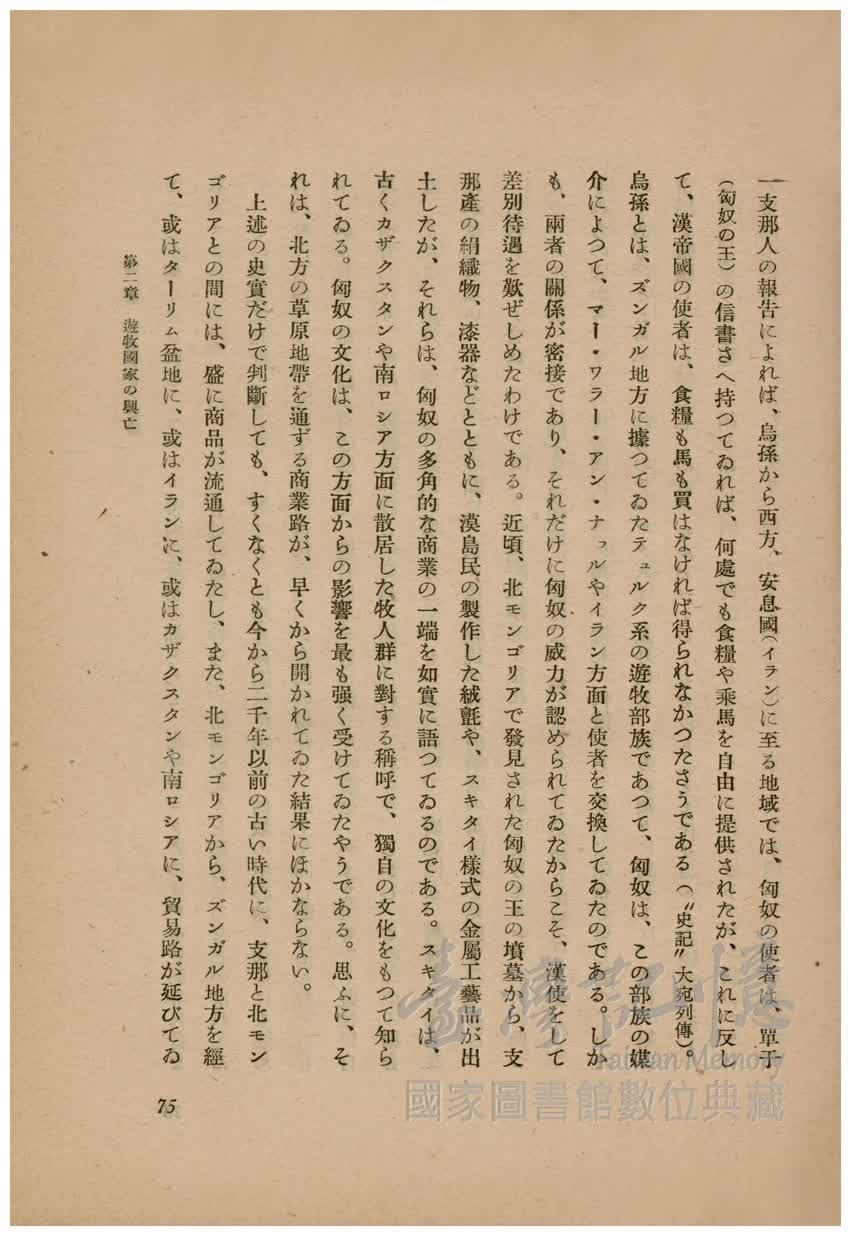 一支那人の報告によれば、烏孫から西方、安息國(イラン)に至る地域では、匈奴の使者は、單于
(匈奴の王)の信書さへ持つてゐれば、何處でも食糧や乘馬を自由に提供されたが、これに反し
て、漢帝國の使者は、食糧も馬も買はなければ得られなかつたさうである(〝史記〟大宛列傳)。
烏孫とは、ズンガル地方に據つてゐたテュルク系の遊牧部族であつて、匈奴は、この部族の媒
介によつて、マー・ワラー・アン・ナフルやイラン方面と使者を交換してゐたのである。しか
も、兩者の關係が密接であり、それだけに匈奴の威力が認められてゐたからこそ、漢使をして
差別待遇を歎ぜしめたわけである。近頃、北モンゴリアで發見された匈奴の王の墳墓から、支
那產の絹織物、漆器などとともに、漠島民の製作した絨氈や、スキタイ樣式の金屬工藝品が出
土したが、それらは、匈奴の多角的な商業の一端を如實に語つてゐるのである。スキタイは、
古くカザクスタンや南ロシア方面に散居した牧人群に對する稱呼で、獨自の文化をもつて知ら
れてゐる。匈奴の文化は、この方面からの影響を最も强く受けてゐたやうである。思ふに、そ
れは、北方の草原地帶を通ずる商業路が、早くから開かれてゐた結果にほかならない。
上述の史實だけで判斷しても、すくなくとも今から二千年以前の古い時代に、支那と北モン
ゴリアとの間には、盛に商品が流通してゐたし、また、北モンゴリアから、ズンガル地方を經
て、或はターリム盆地に、或はイランに、或はカザクスタンや南ロシアに、貿易路が延びてゐ
第二章 遊牧國家の興亡
75
臺灣記憶
Taiwan Memory
國家圖書館數位典藏